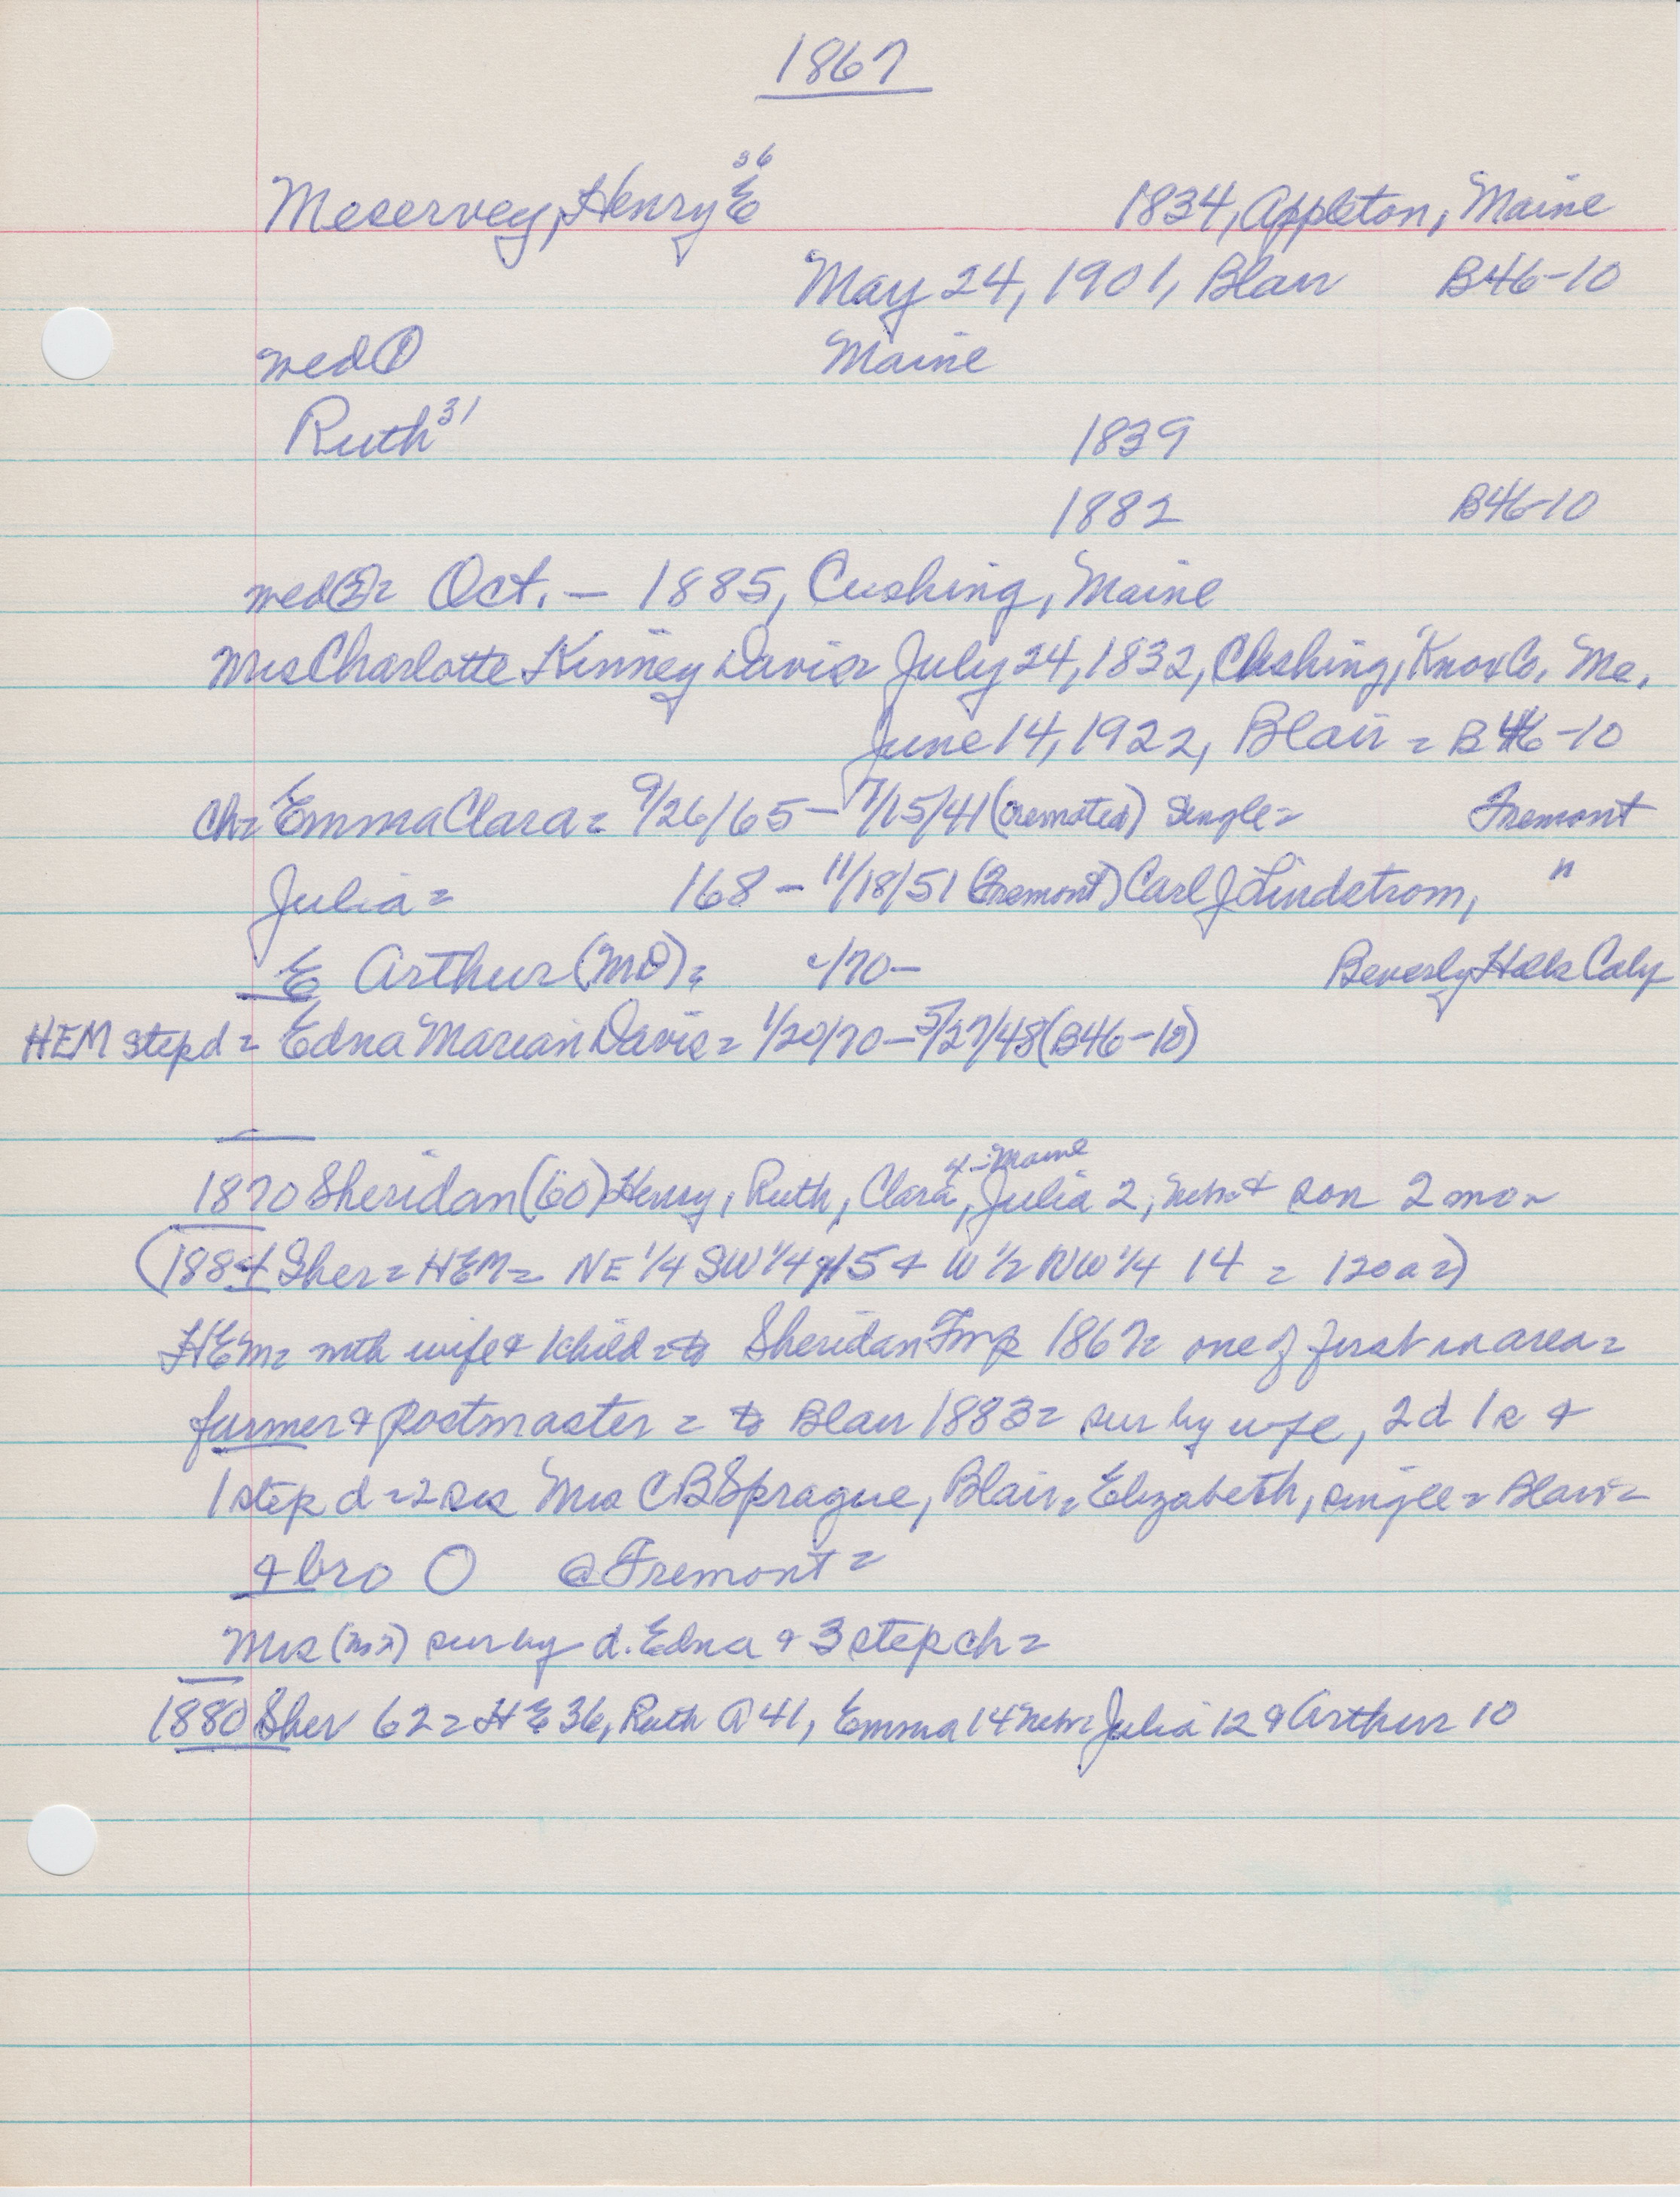 1867
Meservey, Henry E 36 1834, Appleton, Maine
May 24, 1901, Blair B46-10
wed ① Maine
Ruth 31 1839
1882 B46-10
wed ② = Oct. — 1885, Cushing, Maine
Mrs Charlotte Kinney Davis = July 24, 1832, Cushing, Knox Co, Me.
June 14, 1922, Blair = B46-10
Ch = Emma Clara = 9/26/65 — 7/15/41 (cremated) single = Fremont
Julia = /68 — 11/18/51 (Fremont) Carl J Lindstrom, "
E Arthur (MD) = /70 — Beverly Hills Calif
HEM step d = Edna Marian Davis = 1/20/70 — 5/27/48 (B46-10)
1870 Sheridan (60) Henry, Ruth, Clara 4 - Maine, Julia 2, Nebr & son 2 mo =
(1884 Sher = HEM = NE 1/4 SW 1/4 15 & W 1/2 NW 1/4 14 = 120 a =)
HEM = with wife & 1 child = to Sheridan Twp 1867 = one of first in area =
farmer & postmaster = to Blair 1883 = sur by wife, 2 d 1 s &
1 step d = 2 sis Mrs C B Sprague, Blair = Elizabeth, single = Blair =
& bro O @ Fremont =
Mrs sur by d. Edna & 3 step ch =
1880 Sher 62 = H E 36, Ruth A 41, Emma 14 Nebr = Julia 12 & Arthur 10